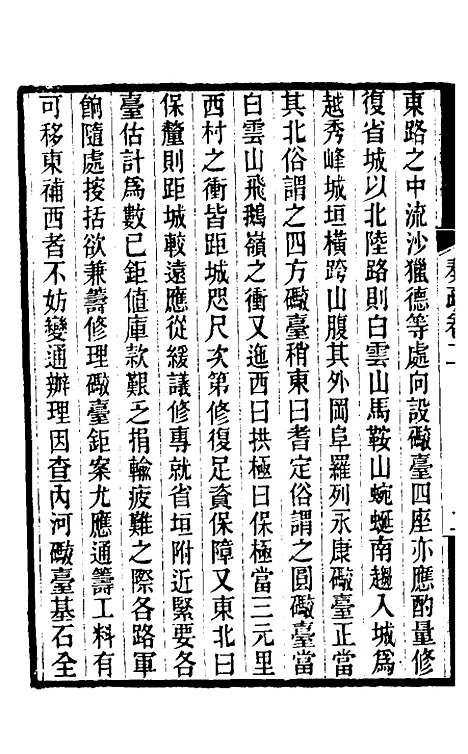 奏疏卷二
東路之中流沙獵德等處向設礮臺四座亦應酌量修
復省城以北陸路則白雲山馬鞍山蜿蜒南趨入城爲
越秀峰城垣橫跨山腹其外岡阜羅列永康礮臺正當
其北俗謂之四方礮臺稍東曰耆定俗謂之圓礮臺當
白雲山飛鵝嶺之衝又迤西曰拱極曰保極當三元里
西村之衝皆距城咫尺次第修復足資保障又東北曰
保釐則距城較遠應從緩議修專就省垣附近緊要各
臺估計爲數已鉅値庫款艱乏捐輸疲難之際各路軍
餉隨處搜括欲兼籌修理礮臺鉅案尤應通籌工料有
可移東補西者不妨變通辦理因查內河礮臺基石全